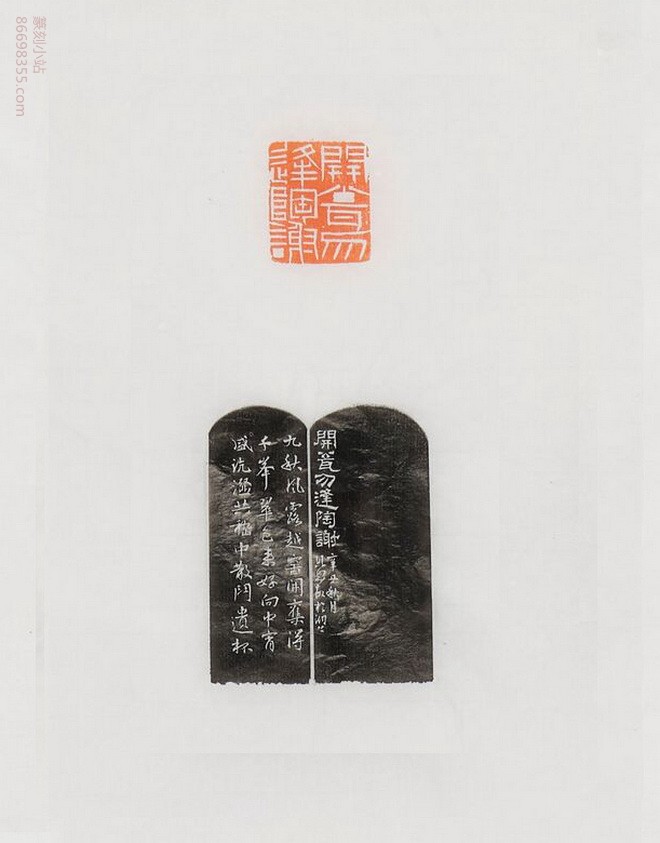 篆刻小站
86698355.com
開瓮勿
逢陶謝
開瓮勿逢陶謝
辛丑秋月
九秋風露越窑開奪得
千峯翠色来好向中宵
盛沆瀣共嵇中散鬥遺杯